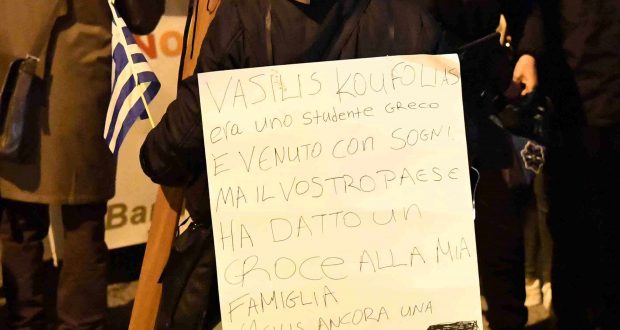 NO
VASILIS KOUFOLIAS
era uno studente GRECO
E VENUTO con SOGNI.
MA IL VOSTRO PAESE
HA DATTO Un
CROCE ALLA MIA
FAMIGLIA
VASILIS ANCORA UNA
Ba